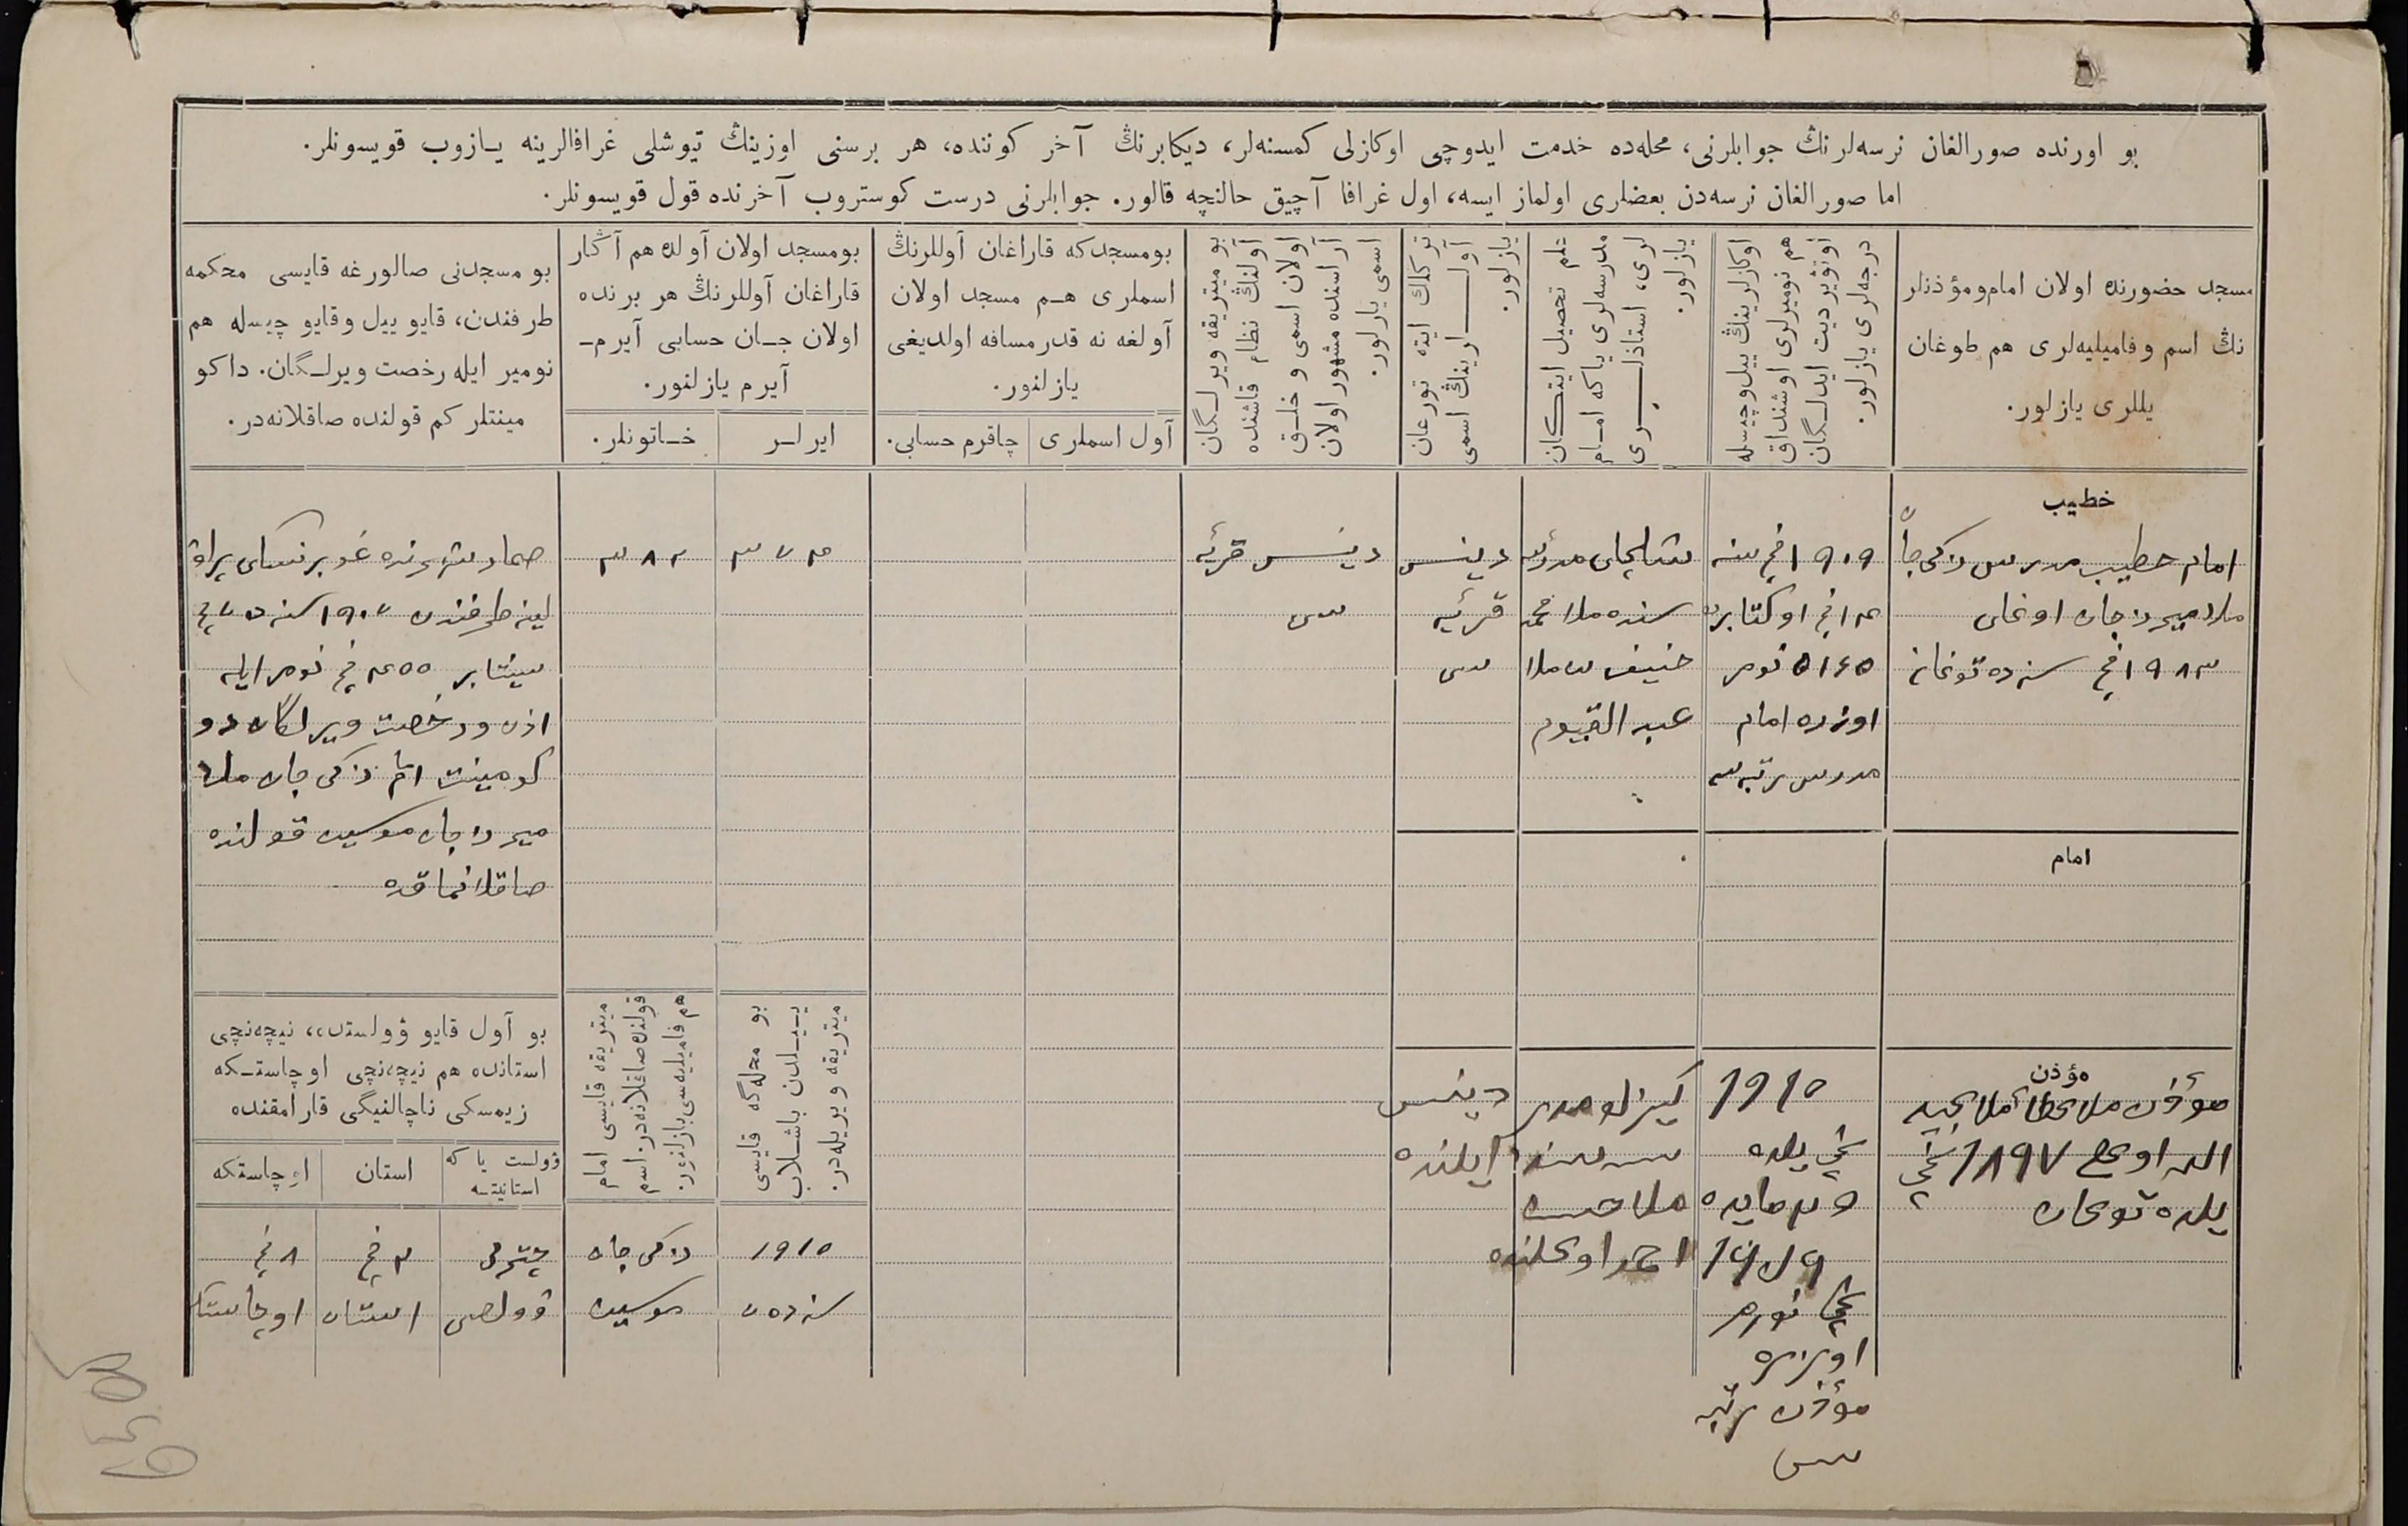 بو اورنده صورالغان نرسه‌لرنڭ جوابلرنی، محله‌ده خدمت ایدوچی اوکازلی کمسنه‌لر، دیکابرنڭ آخر کوننده، هر برسنی اوزینڭ تیوشلی غرافالرینه یازوب قویسونلر.
اما صورالغان نرسه‌دن بعضلری اولماز ایسه، اول غرافا آچیق حالنچه قالور. جوابلرنی درست کوستروب آخرنده قول قویسونلر.
مسجد حضورنده اولان امام‌ومؤذنلر
نڭ اسم وفامیلیه‌لری هم طوغان
یللری یازلور.
اوکازلرینڭ ییل‌وچیسله
هم نومیرلری اوشنداق
اوتویردیت ایدلـگان
درجه‌لری یازلور.
علم تحصیل ایتـکان
مدرسه‌لری یاکه امـام
لری، استاذلـری
یازلور.
ترکلك ایته تورغان
آولـلرینڭ اسمی
یازلور.
بو میتریقه ویرلـگان
آولنڭ نظام قاشنده
اولان اسمی و خلـق
آراسنده مشهور اولان
اسمی یازلور.
بومسجدکه قاراغان آوللرنڭ
اسملری هـم مسجد اولان
آولغه نه قدر مسافه اولدیغی
یازلنور.
آول اسملری
چاقرم حسابی.
بومسجد اولان آولده هم آڭار
قاراغان آوللرنڭ هر برنده
اولان جـان حسابی آیرم‌ـ
آیرم یازلنور.
ایرلـر
خـاتونلر.
بو مسجدنی صالورغه قایسی محکمه
طرفندن، قایو ییل وقایو چیسله هم
نومیر ایله رخصت ویرلـگان. داکو
مینتلر کم قولنده صاقلانه‌در.
خطیب
امام خطیب مدرس ذاکی جان
ملا میرزاجان اوغلی
١٩٨٣ نچی سنه ده توغان
١٩٠٩ نچی سنه
اوکتابرده
٥١٤٥ نومر
اوزره امام
مدرس رتبه سی
سنده ملا محمد
حنیف بن ملا
عبد القیوم
دینس
قریه
سی
دینس قریه
سی
٣٧٢
٣٨٢
لینه طرفندن ١٩٠٧ سنه ده
سینتابر ٤٥٥ نچی نومر ایله
اذن و رخصت ویرلگان دو
کومینت امام ذاکی جان ملا
میرزاجان موسین قولنده
صاقلانماقده
امام
مؤذن
مؤذن ملا
الله اوغلی 1897 نچی
یلده توغان
1915
نچی یلده
مایده
نچی نومر
اوزره
مؤذن رتبه
سی
سی سنده
ملا
احمد اوغلنده
دینس
ایلنده
بو محله‌گه قایسی
ییـلدن باشـلاب
میتریقه ویریله‌در.
میتریقه قایسی امام
قولنده صاقلانه‌در. اسم
هم فامیلیه‌سی یازلنور.
بو آول قایو ؤولستده، نیچه‌نچی
استانده هم نیچه‌نچی اوچاستـکه
زیمسکی ناچالنیگی قارامقنده
ؤولست یا که
استانیتـه
استان
اوچاستکه
1910
سنه دن
ذاکی جان
موسین
وولصی
٢ نچی
استان
٨ نچی
اوچاستکه